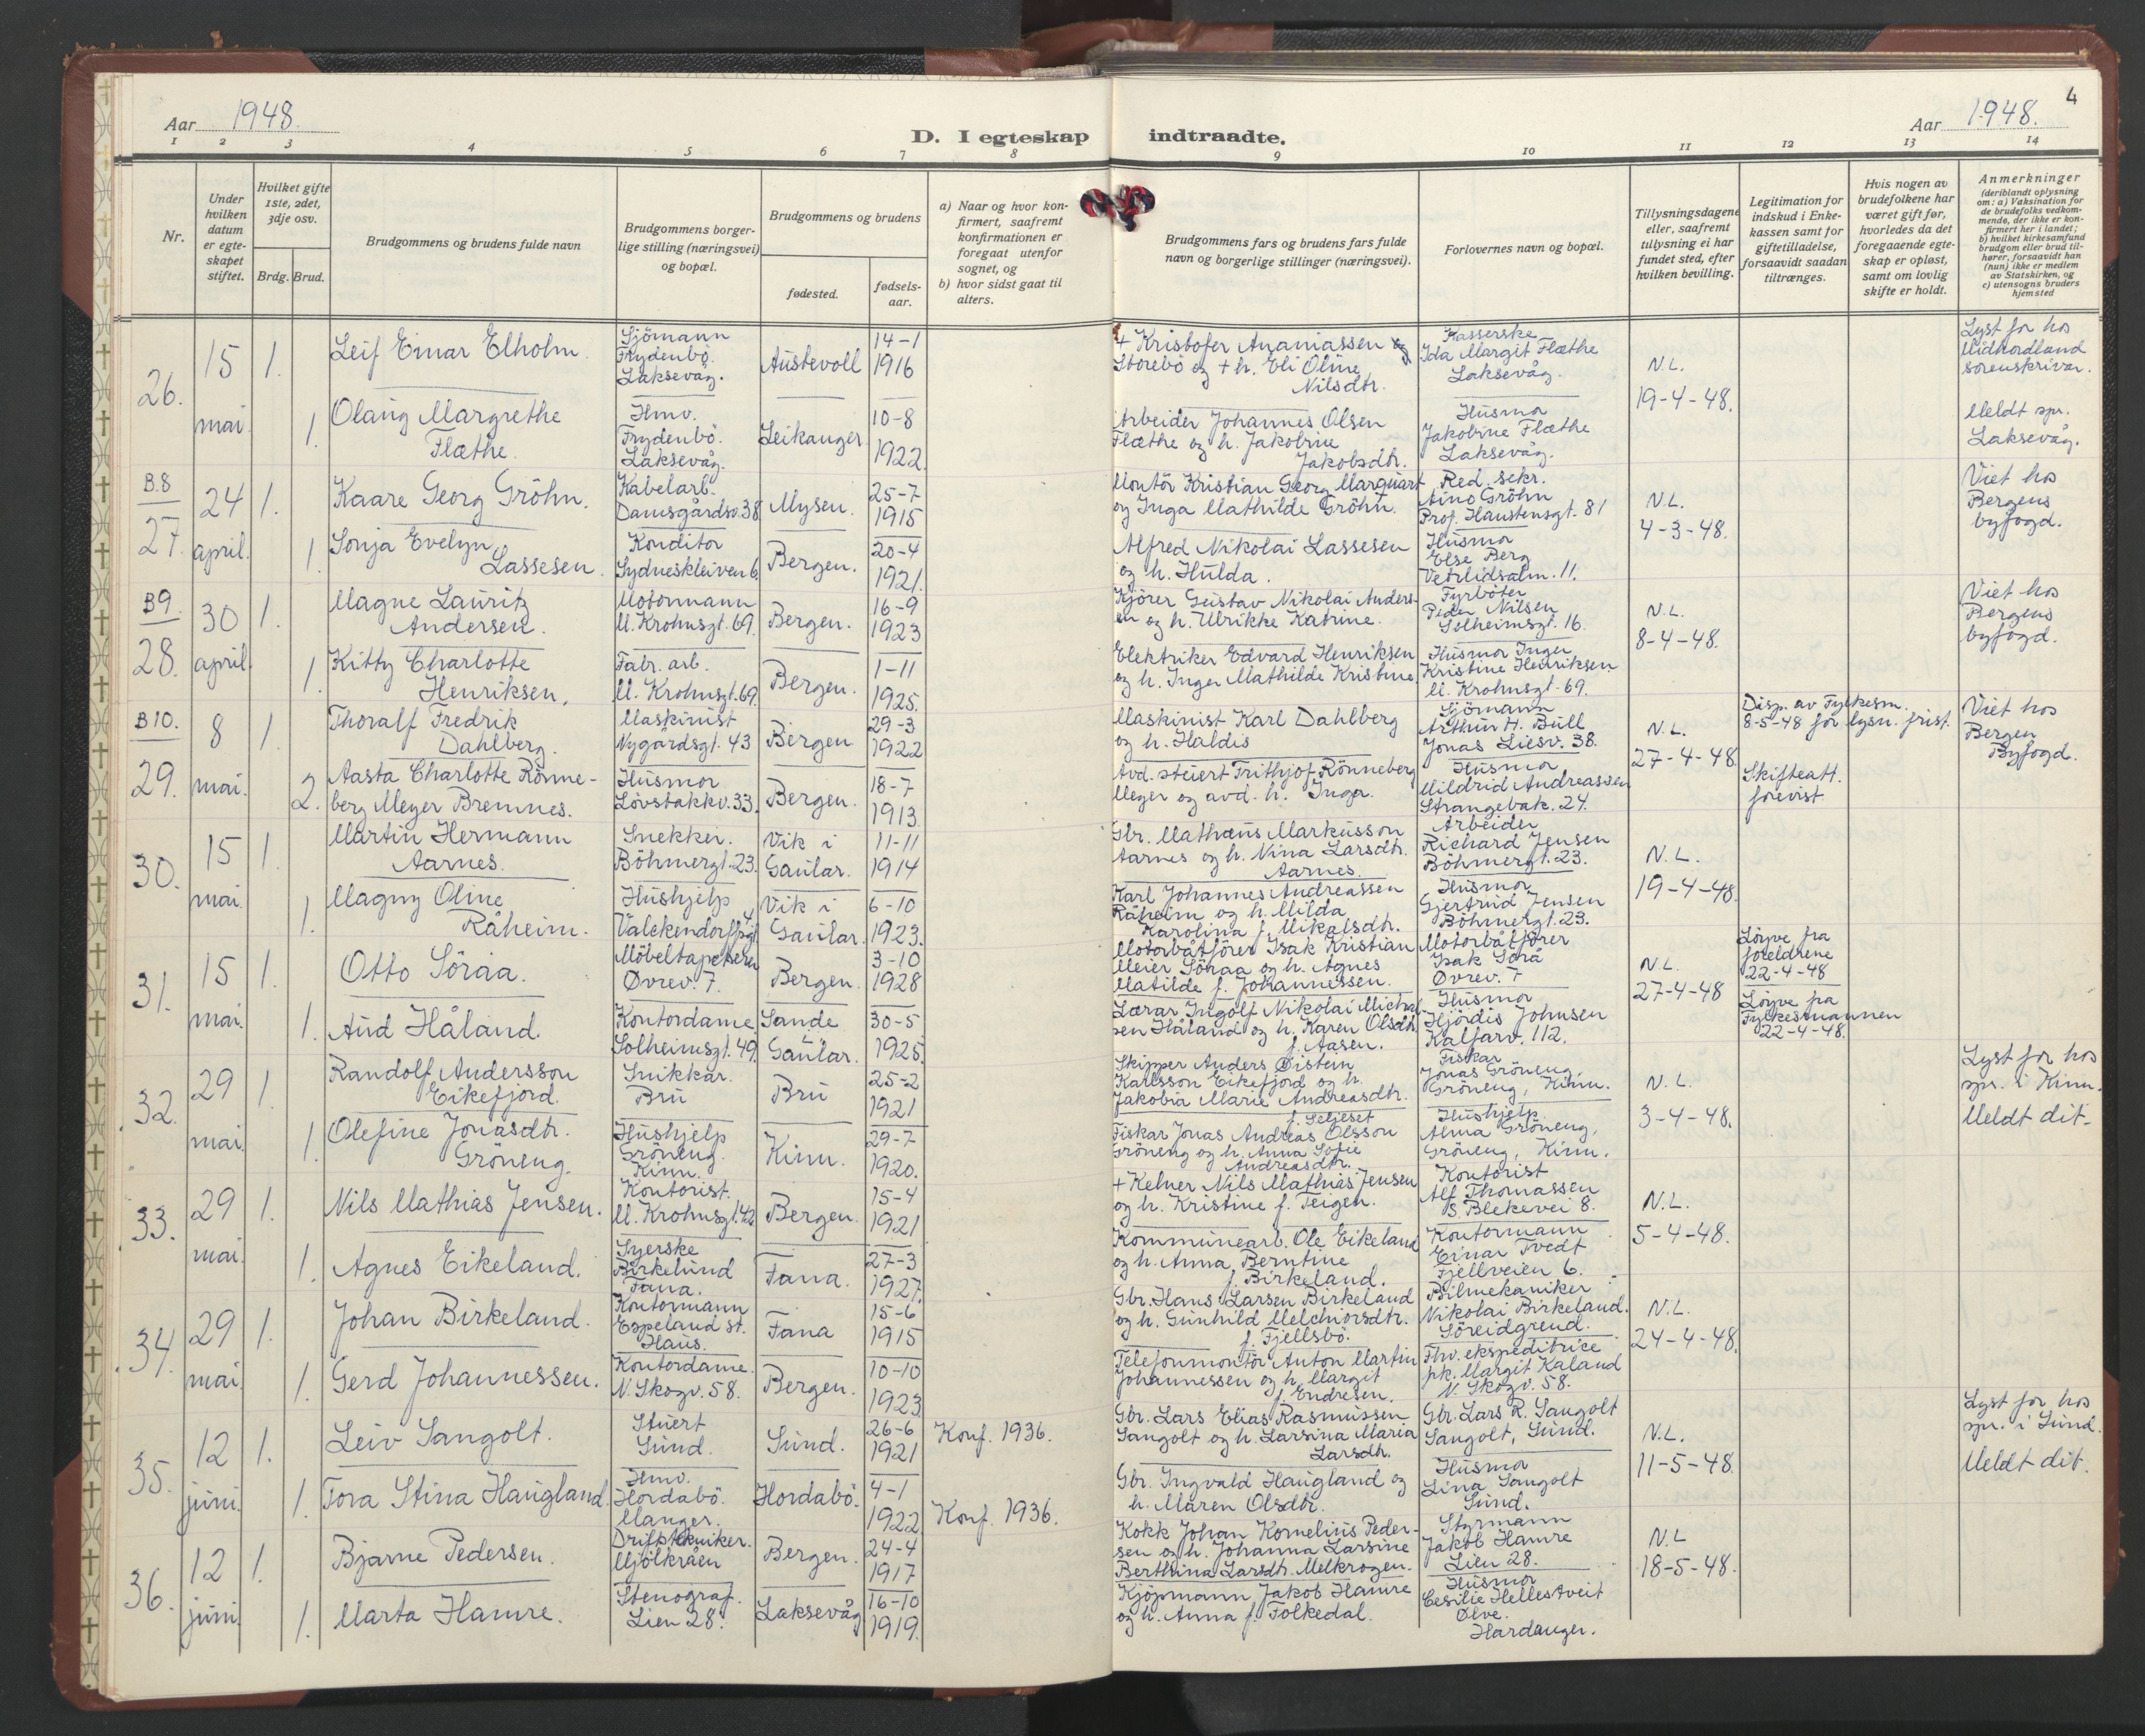 Aar 1948.
D. I egteskap indtraadte.
Aar 1948.
4
1 2 3 4 5 6 7 8 9 10 11 12 13 14
Nr.
Under hvilken datum er egteskapet stiftet.
Hvilket gifte 1ste, 2det, 3dje osv.
Brdg. Brud.
Brudgommens og brudens fulde navn
Brudgommens borgerlige stilling (næringsvei) og bopæl.
Brudgommens og brudens
fødested.
fødselsaar.
a) Naar og hvor konfirmert, saafremt konfirmationen er foregaat utenfor sognet, og
b) hvor sidst gaat til alters.
Brudgommens fars og brudens fars fulde navn og borgerlige stillinger (næringsvei).
Forlovernes navn og bopæl.
Tillysningsdagene eller, saafremt tulysning ei har fundet sted, efter hvilken bevilling.
Legitimation for indskud i Enkekassen samt for giftetilladelse, forsaavidt saadan tiltrænges.
Hvis nogen av brudefolkene har været gift før, hvorledes da det foregaaende egteskap er opløst, samt om lovlig skifte er holdt.
Anmerkninger (deriblandt oplysning om: a) Vaksination for de brudefolks vedkommende, der ikke er konfirmert her i landet; b) hvilket kirkesamfund brudgom eller brud tilhører, forsaavidt han (hun) ikke er medlem av Statskirken, og c) utensogns bruders hjemsted
26. 15 mai 1.
Leif Einar Elholm.
Sjömann
Frydenbö.
Laksevåg.
Austevoll
14-1
1916
+ Kristofer Ananiassen
Storebö og + h. Eli Oline
Nilsdtr.
Kasserske
Ida Margit Flæthe
Laksevåg.
N.L.
19-4-48.
Lyst for hos
Midhordland
sorenskrivar.
1.
Olaug Margrethe
Flæthe.
Hmv.
Frydenbö.
Laksevåg.
Leikanger
10-8
1922.
Arbeider Johannes Olsen
Flæthe og h. Jakobine
Jakobsdtr.
Husmor
Jakobine Flæthe
Laksevåg.
Meldt spr.
Laksevåg.
B.8
27. 24 april. 1.
Kaare Georg Gröhn.
Kabelarb.
Damsgårdsv.38
Mysen.
25-7
1915
Montör Kristian Georg Marquart
og Inga Mathilde Gröhn.
Red. sekr.
Aino Gröhn
Prof. Hanstensgt. 81
N.L.
4-3-48.
Viet hos
Bergens
byfogd.
1.
Sonja Evelyn
Lassesen.
Konditor
Sydneskleiven 6.
Bergen.
20-4
1921.
Alfred Nikolai Lassesen
og h. Hulda.
Husmor
Else Berg
Vetrlidsalm. 11.
B9
28. 30 april. 1.
Magne Lauritz
Andersen.
Motormann
M. Krohnsgt. 69.
Bergen.
16-9
1923
Kjörer Gustav Nikolai Anders-
en og h. Ulrikke Katrine.
Fyrböter
Peder Nilsen
Solheimsgt. 16.
N.L.
8-4-48.
Viet hos
Bergens
byfogd.
1.
Kitty Charlotte
Henriksen.
Fabr. arb.
M. Krohnsgt. 69.
Bergen.
1-11
1925.
Elektriker Edvard Henriksen
og h. Inger Mathilde Kristine.
Husmor Inger
Kristine Henriksen
M. Krohnsgt. 69.
B10.
29. 8 mai. 1.
Thoralf Fredrik
Dahlberg.
Maskinist
Nygårdsgt. 43
Bergen
29-3
1922
Maskinist Karl Dahlberg
og h. Haldis
Sjömann
Arthur H. Bull
Jonas Liesv. 38.
N.L.
27-4-48
Disp. av Fylkesm.
8-5-48 for lysn. frist.
Viet hos
Bergen
Byfogd.
2.
Aasta Charlotte Rönne-
berg Meyer Bremnes.
Husmor
Lövstakkv. 33.
Bergen.
18-7
1913.
Avd. stuert Frithjof Rönneberg
Meyer og avd. h. Inga.
Husmor
Mildrid Andreassen
Strangebak. 24.
Skifteatt.
forevist
30. 15 mai 1.
Martin Hermann
Aarnes.
Snekker.
Böhmergt. 23.
Vik i
Gaular.
11-11
1914
Gbr. Mathæus Markusson
Aarnes og h. Nina Larsdtr.
Aarnes.
Arbeider
Richard Jensen
Böhmergt. 23.
N.L.
19-4-48.
1.
Magny Oline
Råheim.
Hushjelp
Valckendorffsgt. 4
Vik i
Gaular.
6-10
1923.
Karl Johannes Andreassen
Råheim og h. Milda
Karolina f. Mikalsdtr.
Husmor
Gjertrud Jensen
Böhmergt. 23.
31. 15 mai. 1.
Otto Söraa.
Möbeltapetserer
Øvrev. 7.
Bergen.
3-10
1928
Motorbåtförer Isak Kristian
Meier Söraa og h. Agnes
Matilde f. Johannessen.
Motorbåtförer
Isak Sörå
Øvrev. 7
N.L.
27-4-48
Löyve fra
foreldrene
22-4-48
1.
Aud Håland.
Kontordame
Solheimsgt. 49.
Sande
i
Gaular.
30-5
1925.
Lærar Ingolf Nikolai Michal-
sen Håland og h. Karen Olsdtr.
f. Aasen.
Husmor
Hjördis Johnsen
Kalfarv. 112.
Löyve fra
Fylkesmannen
22-4-48.
32. 29 mai. 1.
Randolf Andersson
Eikefjord.
Snikkar.
Bru
Bru
25-2
1921
Skipper Anders Øistein
Karlsson Eikefjord og h.
Jakobia Marie Andreasdtr.
f. Seljeset
Fiskar
Jonas Gröneng,
Gröneng, Kinn.
N.L.
3-4-48.
Lyst for hos
spr. i Kinn.
Meldt dit.
1.
Olefine Jonasdtr.
Gröneng.
Hushjelp
Gröneng.
Kinn.
Kinn.
29-7
1920.
Fiskar Jonas Andreas Olsson
Gröneng og h. Anna Sofie
Andreasdtr.
Hushjelp
Alma Gröneng,
Gröneng, Kinn.
33. 29 mai. 1.
Nils Mathias Jensen.
Kontorist.
M. Krohnsgt. 42
Bergen.
15-4
1921
+ Kelner Nils Mathias Jensen
og h. Kristine f. Teigen.
Kontorist
Alf Thomassen
S. Blekevei 8.
N.L.
5-4-48.
1.
Agnes Eikeland.
Syerske
Birkelund
Fana.
Fana.
27-3
1927.
Kommunearb. Ole Eikeland
og h. Anna Berntine
f. Birkeland.
Kontormann
Einar Tvedt
Fjellveien 6.
34. 29 mai. 1.
Johan Birkeland.
Kontormann
Espeland st.
Haus.
Fana
15-6
1915
Gbr. Hans Larsen Birkeland
og h. Gunhild Melchiorsdtr.
f. Fjellsbö.
Bilmekaniker
Nikolai Birkeland.
Söreidgrend.
N.L.
24-4-48.
1.
Gerd Johannessen.
Kontordame.
N. Skogv. 58.
Bergen.
10-10
1923.
Telefonmontör Anton Martin
Johannessen og h. Margit
f. Endresen.
Fhv. ekspeditrice
pk. Margit Kaland
N. Skogv. 58.
35. 12 juni. 1.
Leiv Sangolt.
Stuert
Sund.
Sund.
26-6
1921
Konf. 1936.
Gbr. Lars Elias Rasmussen
Sangolt og h. Larsina Maria
Larsdtr.
Gbr. Lars R. Sangolt
Sangolt, Sund.
N.L.
11-5-48.
Lyst for hos
spr. i Sund.
Meldt dit.
1.
Tora Stina Haugland.
Hmv.
Hordabö.
Manger.
Hordabö.
4-1
1922.
Konf. 1936.
Gbr. Ingvald Haugland og
h. Maren Olsdtr.
Husmor
Lina Sangolt
Sund.
36. 12 juni. 1.
Bjarne Pedersen.
Driftstekniker.
Mjölkråen
Bergen.
24-4
1917
Kokk Johan Kornelius Peder-
sen og h. Johanna Larsine
Berthina Larsdtr. Melkrogen.
Styrmann
Jakob Hamre
Lien 28.
N.L
18-5-48.
1.
Marta Hamre.
Stenograf.
Lien 28.
Laksevåg
16-10
1919.
Kjöpmann Jakob Hamre
og h. Anna f. Folkedal.
Husmor
Cesilie Hellestveit
Ølve.
Hardanger.